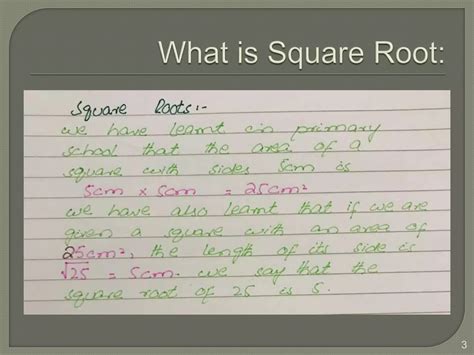 What is Square Root:
Square Roots:-
we have learnt in primary
school that the area of a
square with sides 5cm is
5cm × 5cm = 25cm²
we have also learnt that if we are
given a square with an area of
25cm², the length of its side is
√25 = 5cm. we say that the
square root of 25 is 5.
3